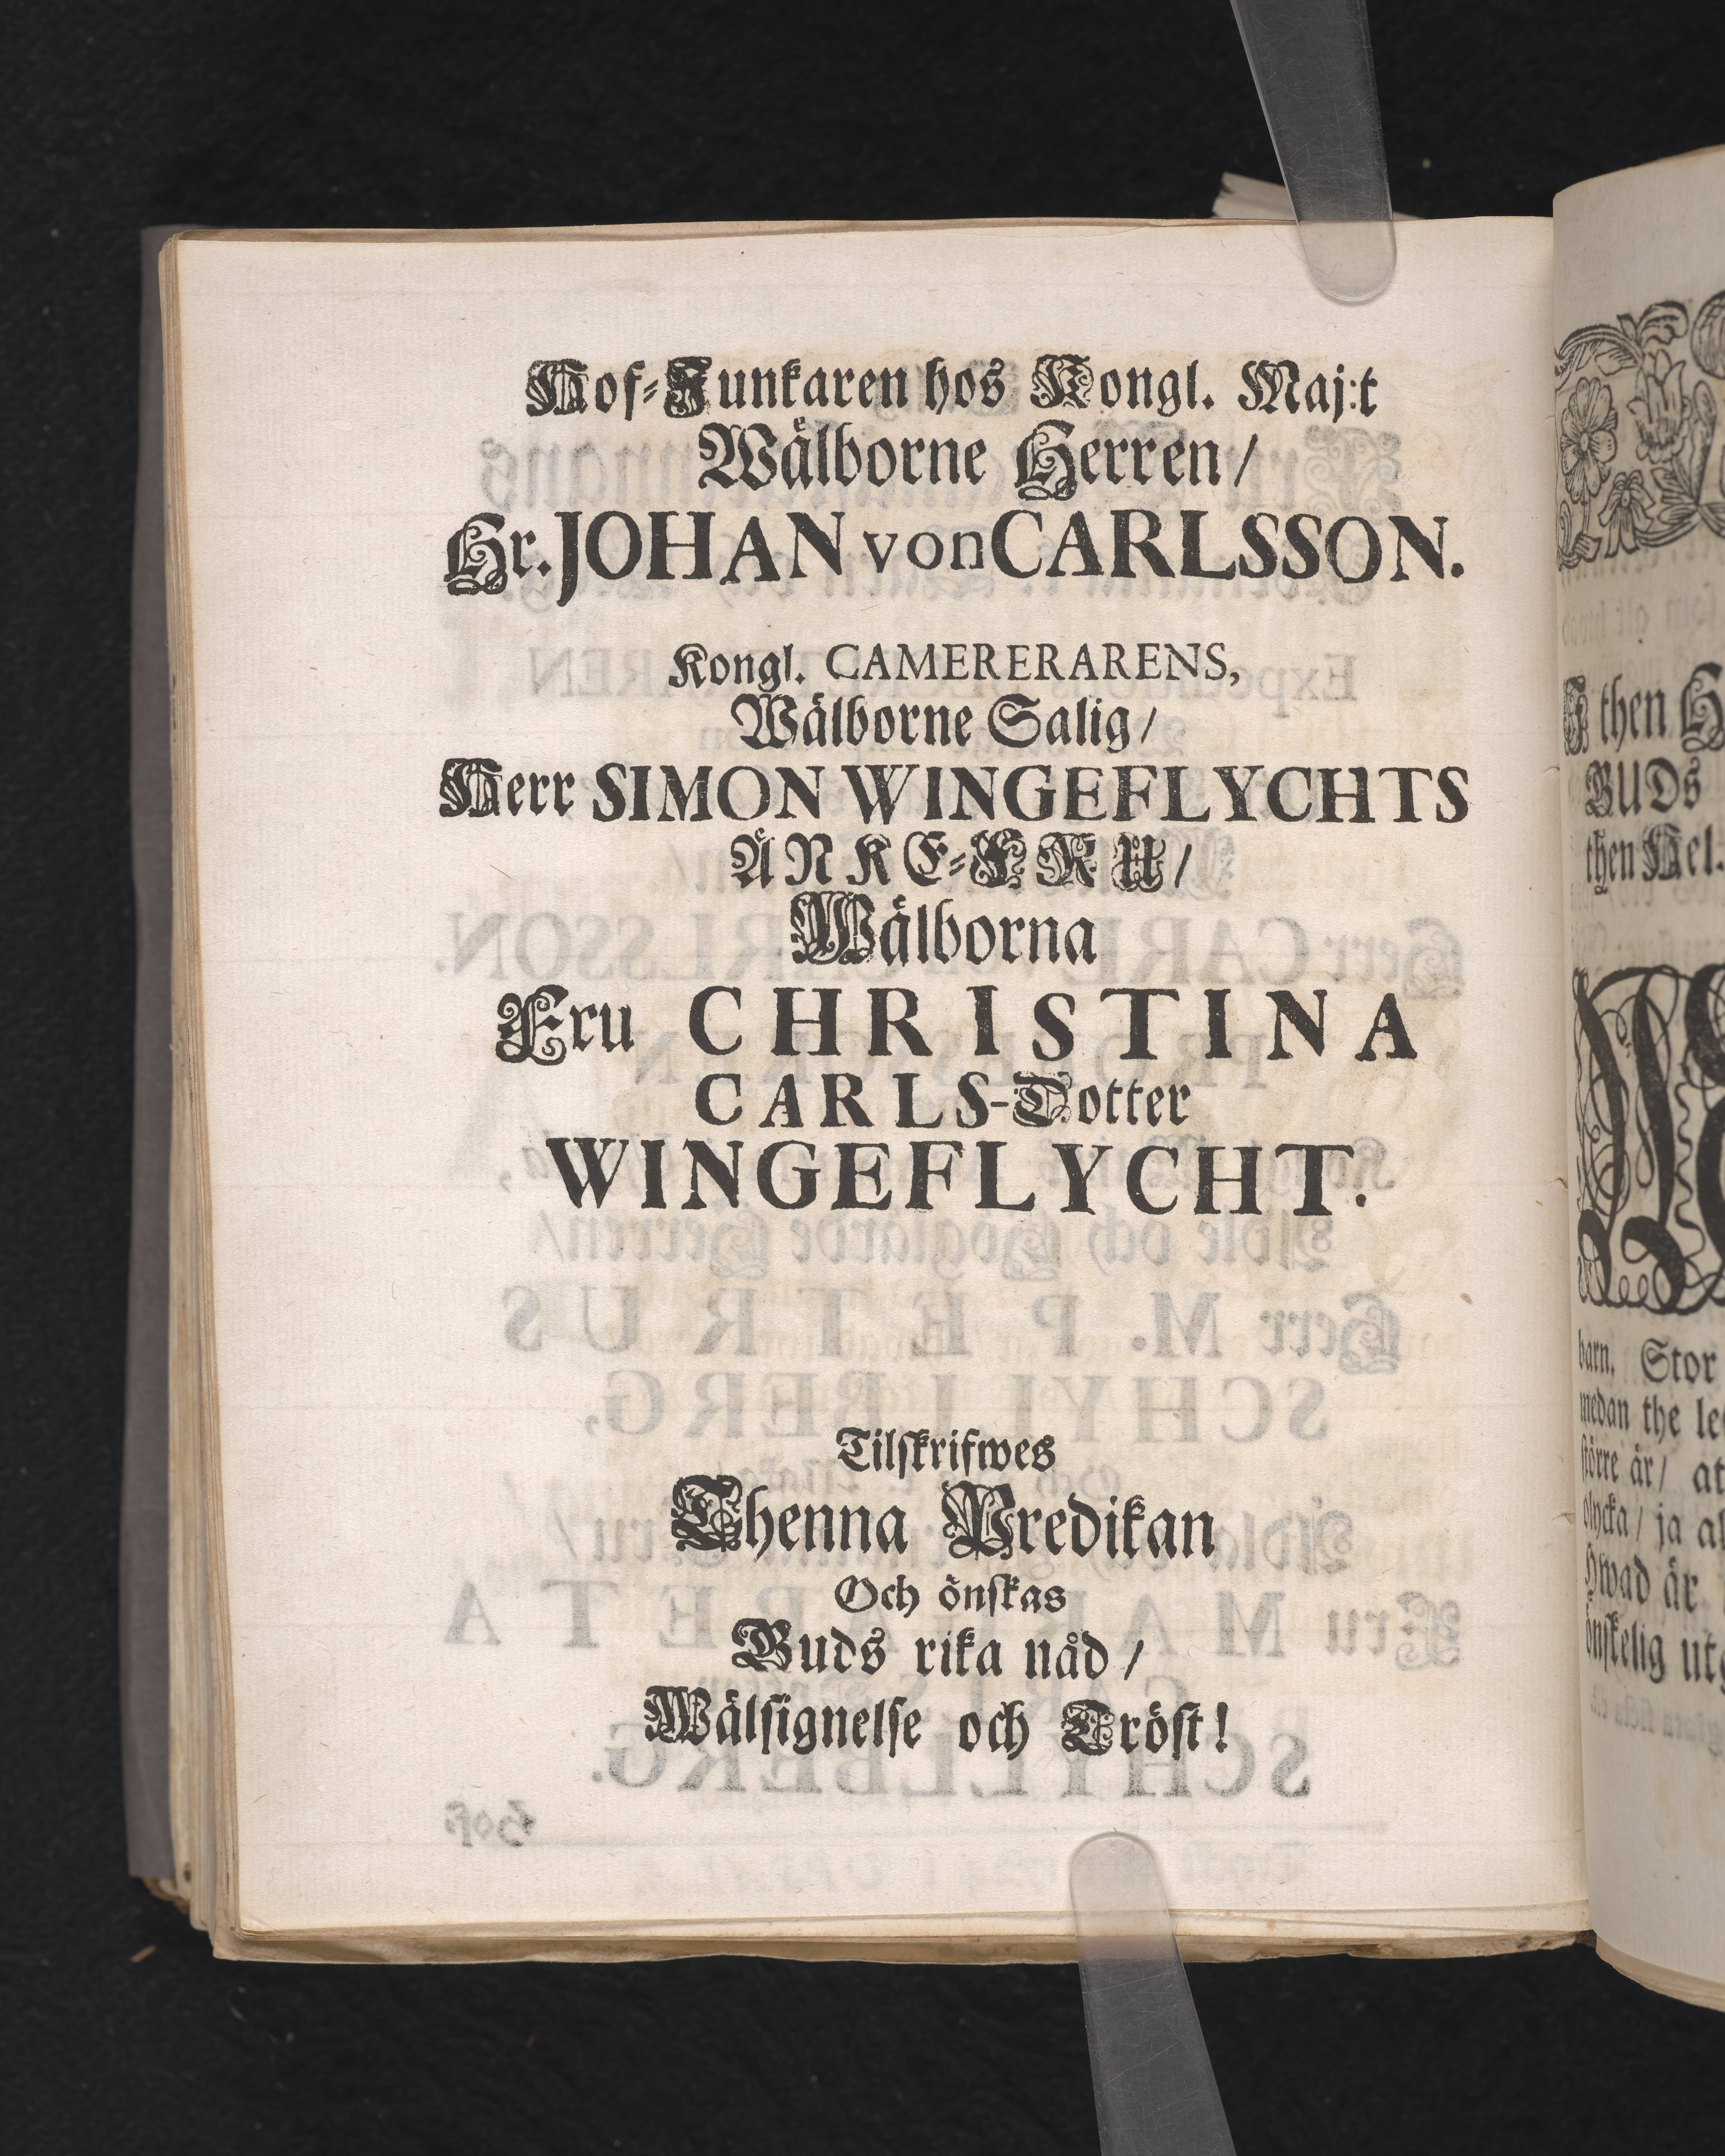 Hof-Junkaren hos Kongl. Maj:t
Wälborne Herren/
Hr. JOHAN von CARLSSON.
Kongl. CAMERERARENS,
Wälborne Salig/
Herr SIMON WINGEFLYCHTS
ÄNKE-FRU/
Wälborna
Fru CHRISTINA
CARLS-Dotter
WINGEFLYCHT.
Tilſkrifwes
Thenna Predikan
Och önſkas
Guds rika nåd/
Wälſignelſe och Tröſt!
then
GUDs
then Hel.
barn. Stor
medan the
ſtörre är/ at
olycka/ ja al
Hwad är
önſkelig